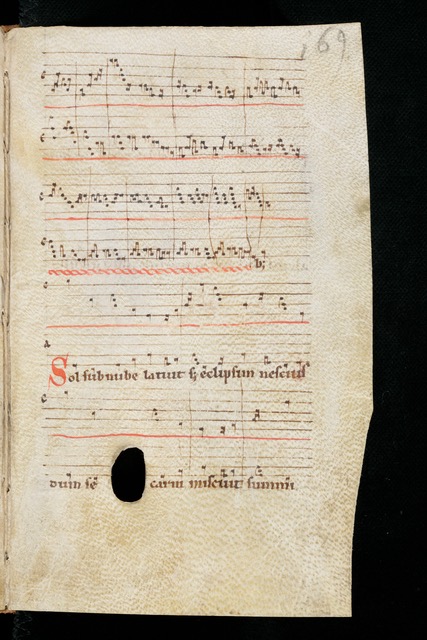 169
Sol sub nube latuit sʒ eclipsim nesciuit
dum sē carni miscuit summi